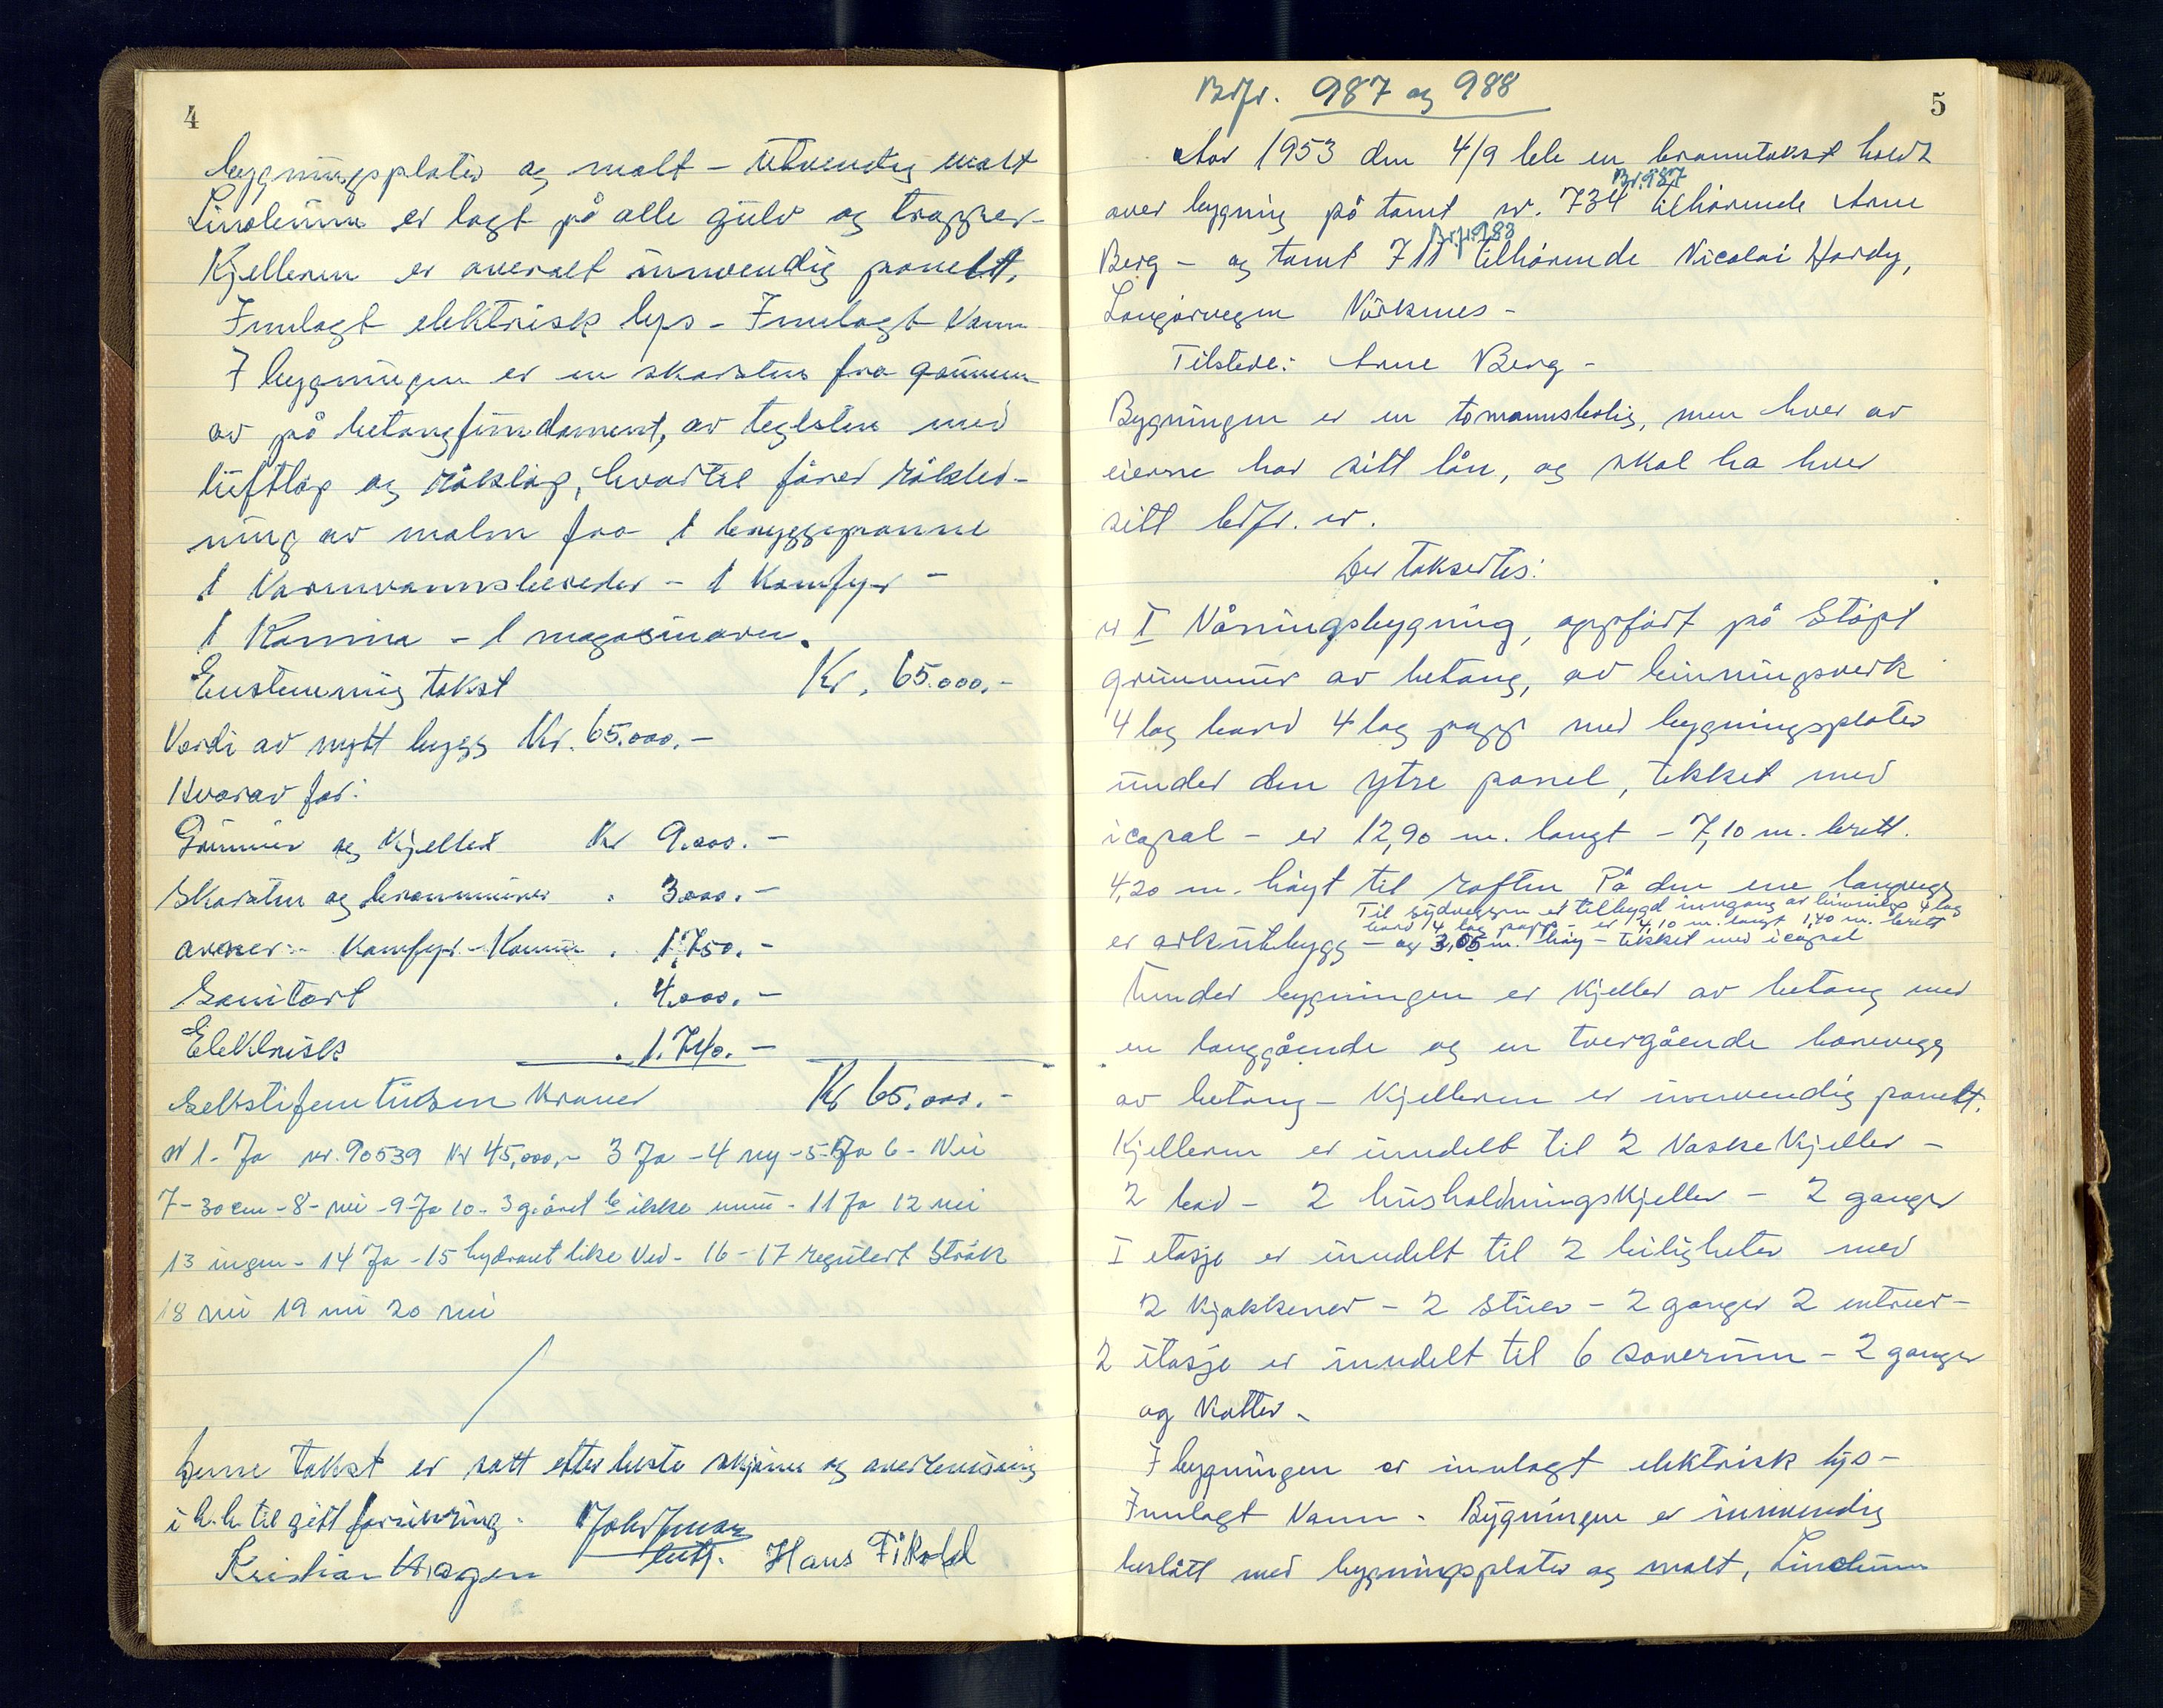 4
bygningsplater og malt - Utvendig malt
Linoleum er lagt på alle gulv og trapper -
Kjelleren er overalt innvendig panelt.
Innlagt elektrisk lys - Innlagt Vann
I bygningen er en skorsten fra grunnen
av på betongfundament, av teglsten med
luftløp og røkløp, hvortil fører røkled-
ning av malm fra 1 bryggepanne
1 Varmvannsbereder - 1 Komfyr -
1 Kamin - 1 magasinovn.
Enstemmig takst Kr. 65.000.-
Verdi av nytt bygg Kr. 65.000.-
Hvorav for:
Grunnmur og Kjeller Kr 9.000.-
Skorsten og brannmurer " 3000.-
ovner:- Komfyr - Kamin " 1.750.-
Sanitært " 4.000.-
Elektrisk " 1.740.-
Sekstifemtusen Kroner Kr 65.000.-
N 1- Ja nr. 90539 Kr 45,000,- 3 Ja - 4 ny - 5 Ja 6 - Nei
7 - 30 cm - 8 - nei - 9 - Ja 10 - 3 g. året b ikke - 11 Ja 12 nei
13 ingen - 14 Ja - 15 hydrant like Ved - 16 - 17 regulert Strøk
18 nei 19 nei 20 nei
Denne takst er satt etter beste skjønn og overbevisning
i h.h. til gitt forsikring.
Kristian Hagen Hans

Brfr. 987 og 988
5
Aar 1953 den 4/9 ble en branntakst holdt
Br. 987
over bygning på tomt nr. 734 tilhørende Arne
Br.fr. 988
Berg - og tomt 711 tilhørende Nicolai Hardy,
Langørvegen Nörksnes -
Tilstede: Arne Berg -
Bygningen er en tomannsbolig, men hver av
eierne har sitt lån, og skal ha hver
sitt brfr. nr.
Der taksertes:
I Våningsbygning, oppført på Støpt
grunnmur av betong, av binningsverk
4 lag bord 4 lag papp med bygningsplater
under den ytre panel, tekket med
icopal - er 12,90 m. langt - 7,10 m. brett.
4,20 m. høyt til raften På den ene langvegg
Til sydveggen er tilbygd inngang av binningsv 4 lag
bord 4 lag papp - er 4,10 m. langt 1,40 m. brett
er arkutbygg - og 3,05 m. høy - tekket med icopal
Under bygningen er Kjeller av betong med
en langgående og en tvergående bærevegg
av betong - Kjelleren er innvendig panelt.
Kjelleren er inndelt til 2 VaskeKjeller -
2 bad - 2 husholdningsKjeller - 2 ganger
I etasje er inndelt til 2 leiligheter med
2 Kjøkkener - 2 Stuer - 2 ganger 2 entreer -
2 etasje er inndelt til 6 soverum - 2 ganger
og Kotter -
I bygningen er innlagt elektrisk lys -
Innlagt Vann - Bygningen er innvendig
beslått med bygningsplater og malt, Linoleum